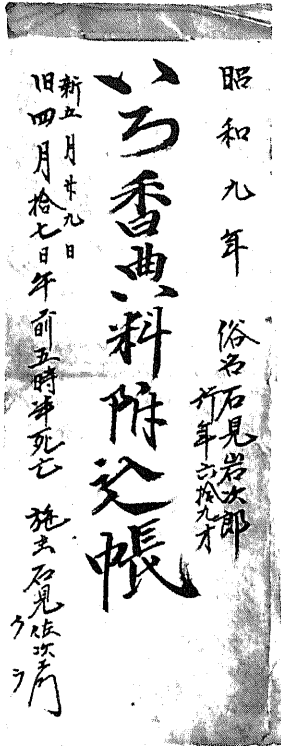 昭和九年　俗名石見岩次郎
行年六拾九才
いろ香典料附込帳
新五月廿九日
旧四月拾七日午前五時半死亡　施主石見佐次エ門
ウシ